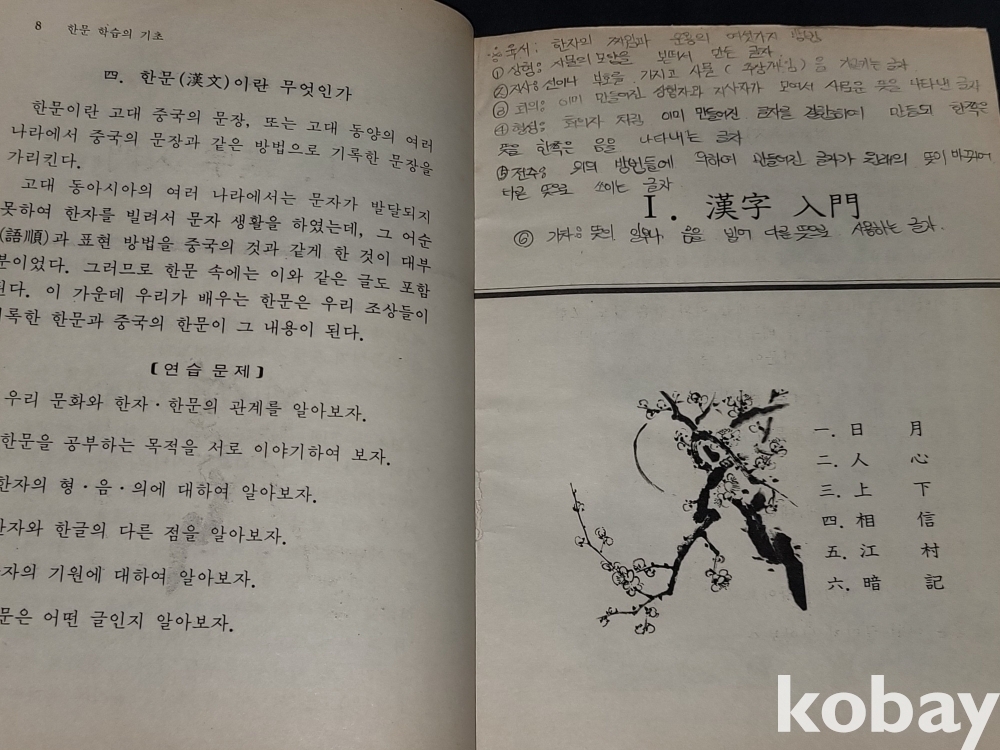 8 한문 학습의 기초
四. 한문(漢文)이란 무엇인가
한문이란 고대 중국의 문장, 또는 고대 동양의 여러
나라에서 중국의 문장과 같은 방법으로 기록한 문장을
가리킨다.
고대 동아시아의 여러 나라에서는 문자가 발달되지
못하여 한자를 빌려서 문자 생활을 하였는데, 그 어순
(語順)과 표현 방법을 중국의 것과 같게 한 것이 대부
분이었다. 그러므로 한문 속에는 이와 같은 글도 포함
된다. 이 가운데 우리가 배우는 한문은 우리 조상들이
기록한 한문과 중국의 한문이 그 내용이 된다.
〔연습 문제〕
우리 문화와 한자·한문의 관계를 알아보자.
한문을 공부하는 목적을 서로 이야기하여 보자.
한자의 형·음·의에 대하여 알아보자.
한자와 한글의 다른 점을 알아보자.
자의 기원에 대하여 알아보자.
문은 어떤 글인지 알아보자.
육서: 한자의 짜임과 운용의 여섯가지 방법
① 상형: 사물의 모양을 본떠서 만든 글자
② 지사: 선이나 부호를 가지고 사물(추상개념)을 가리키는 글자
③ 회의: 이미 만들어진 상형자와 지사자가 모여서 새로운 뜻을 나타낸 글자
④ 형성: 회의자 처럼 이미 만들어진 글자를 결합하여 만들되 한쪽은
뜻을 한쪽은 음을 나타내는 글자
⑤ 전주: 위의 방법들에 의하여 만들어진 글자가 본래의 뜻이 바뀌어
다른 뜻으로 쓰이는 글자
I. 漢字 入門
⑥ 가차: 뜻이 음을 빌어 다른 뜻으로 사용하는 글자.
一. 日 月
二. 人 心
三. 上 下
四. 相 信
五. 江 村
六. 暗 記
kobay